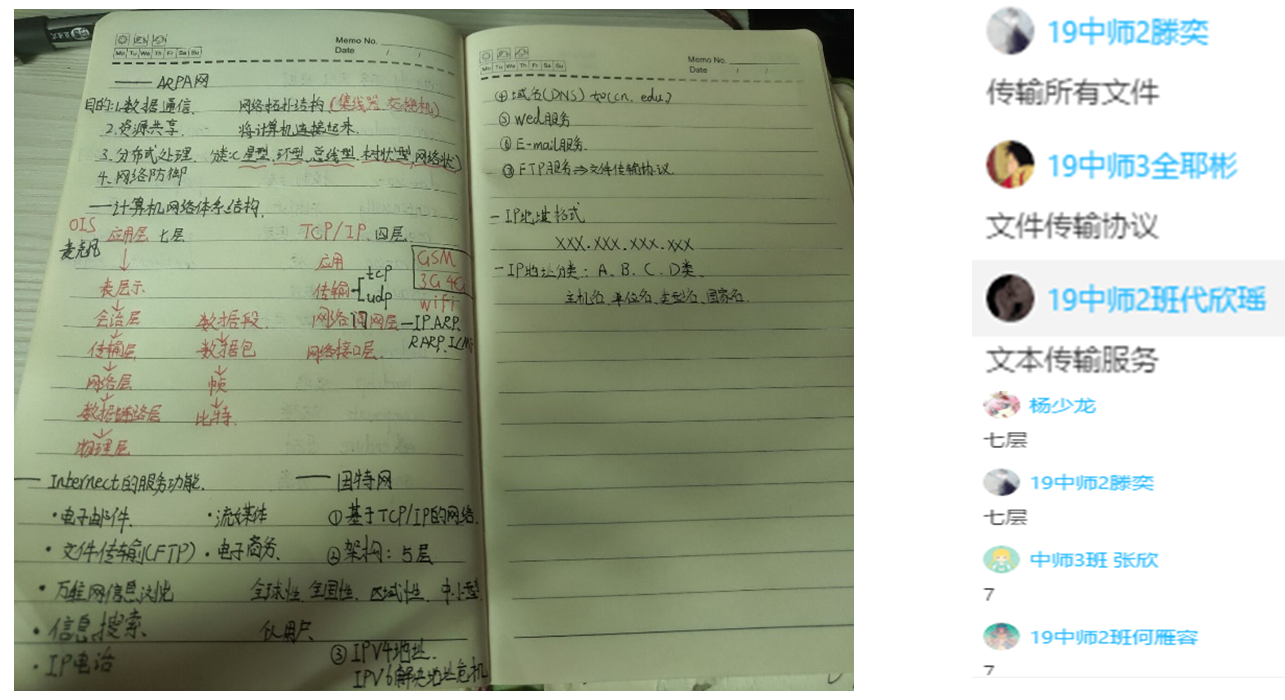 Memo No.
Mo Tu We Th Fr Sa Su
Date / /
—— ARPA网
目的:1.数据通信. 网络拓扑结构(集线器、交换机)
2.资源共享. 将计算机连接起来.
3.分布式处理. 分类:星型,环型,总线型,树状型,网络状)
4.网络防御
一计算机网络体系结构.
OIS 应用层 七层 TCP/IP、四层.
麦克风
应用
GSM
tcp
3G 4G
表层示
传输
udp
wifi
会话层 数据段. 网络 网层—IP.ARP.
RARP.
传输层 数据包 网络接口层.
网络层 帧
数据链路层 比特.
物理层
— Internect的服务功能. —— 因特网
·电子邮件、 ·流媒体 ①基于TCP/IP的网络.
·文件传输(FTP)·电子商务、 ②架构:5层
·万维网信息浏览 全球性、全国性、区域性、中小型
·信息搜索、
·IP电话
③IPV4地址.
IPV6解决地址危机
Memo No.
Mo Tu We Th Fr Sa Su
Date / /
④域名(DNS) 如(cn、edu)
⑤Wed服务
⑥E-mail服务.
⑦FTP服务⇒文件传输协议.
-IP地址格式
XXX.XXX.XXX.XXX
-IP地址分类:A、B、C、D类、
主机名,单位名,类型名,国家名.
19中师2滕奕
传输所有文件
19中师3全耶彬
文件传输协议
19中师2班代欣瑶
文本传输服务
杨少龙
七层
19中师2滕奕
七层
中师3班 张欣
7
19中师2班何雁容
7